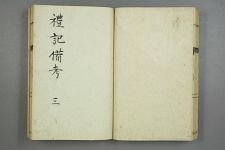 禮記備考 三